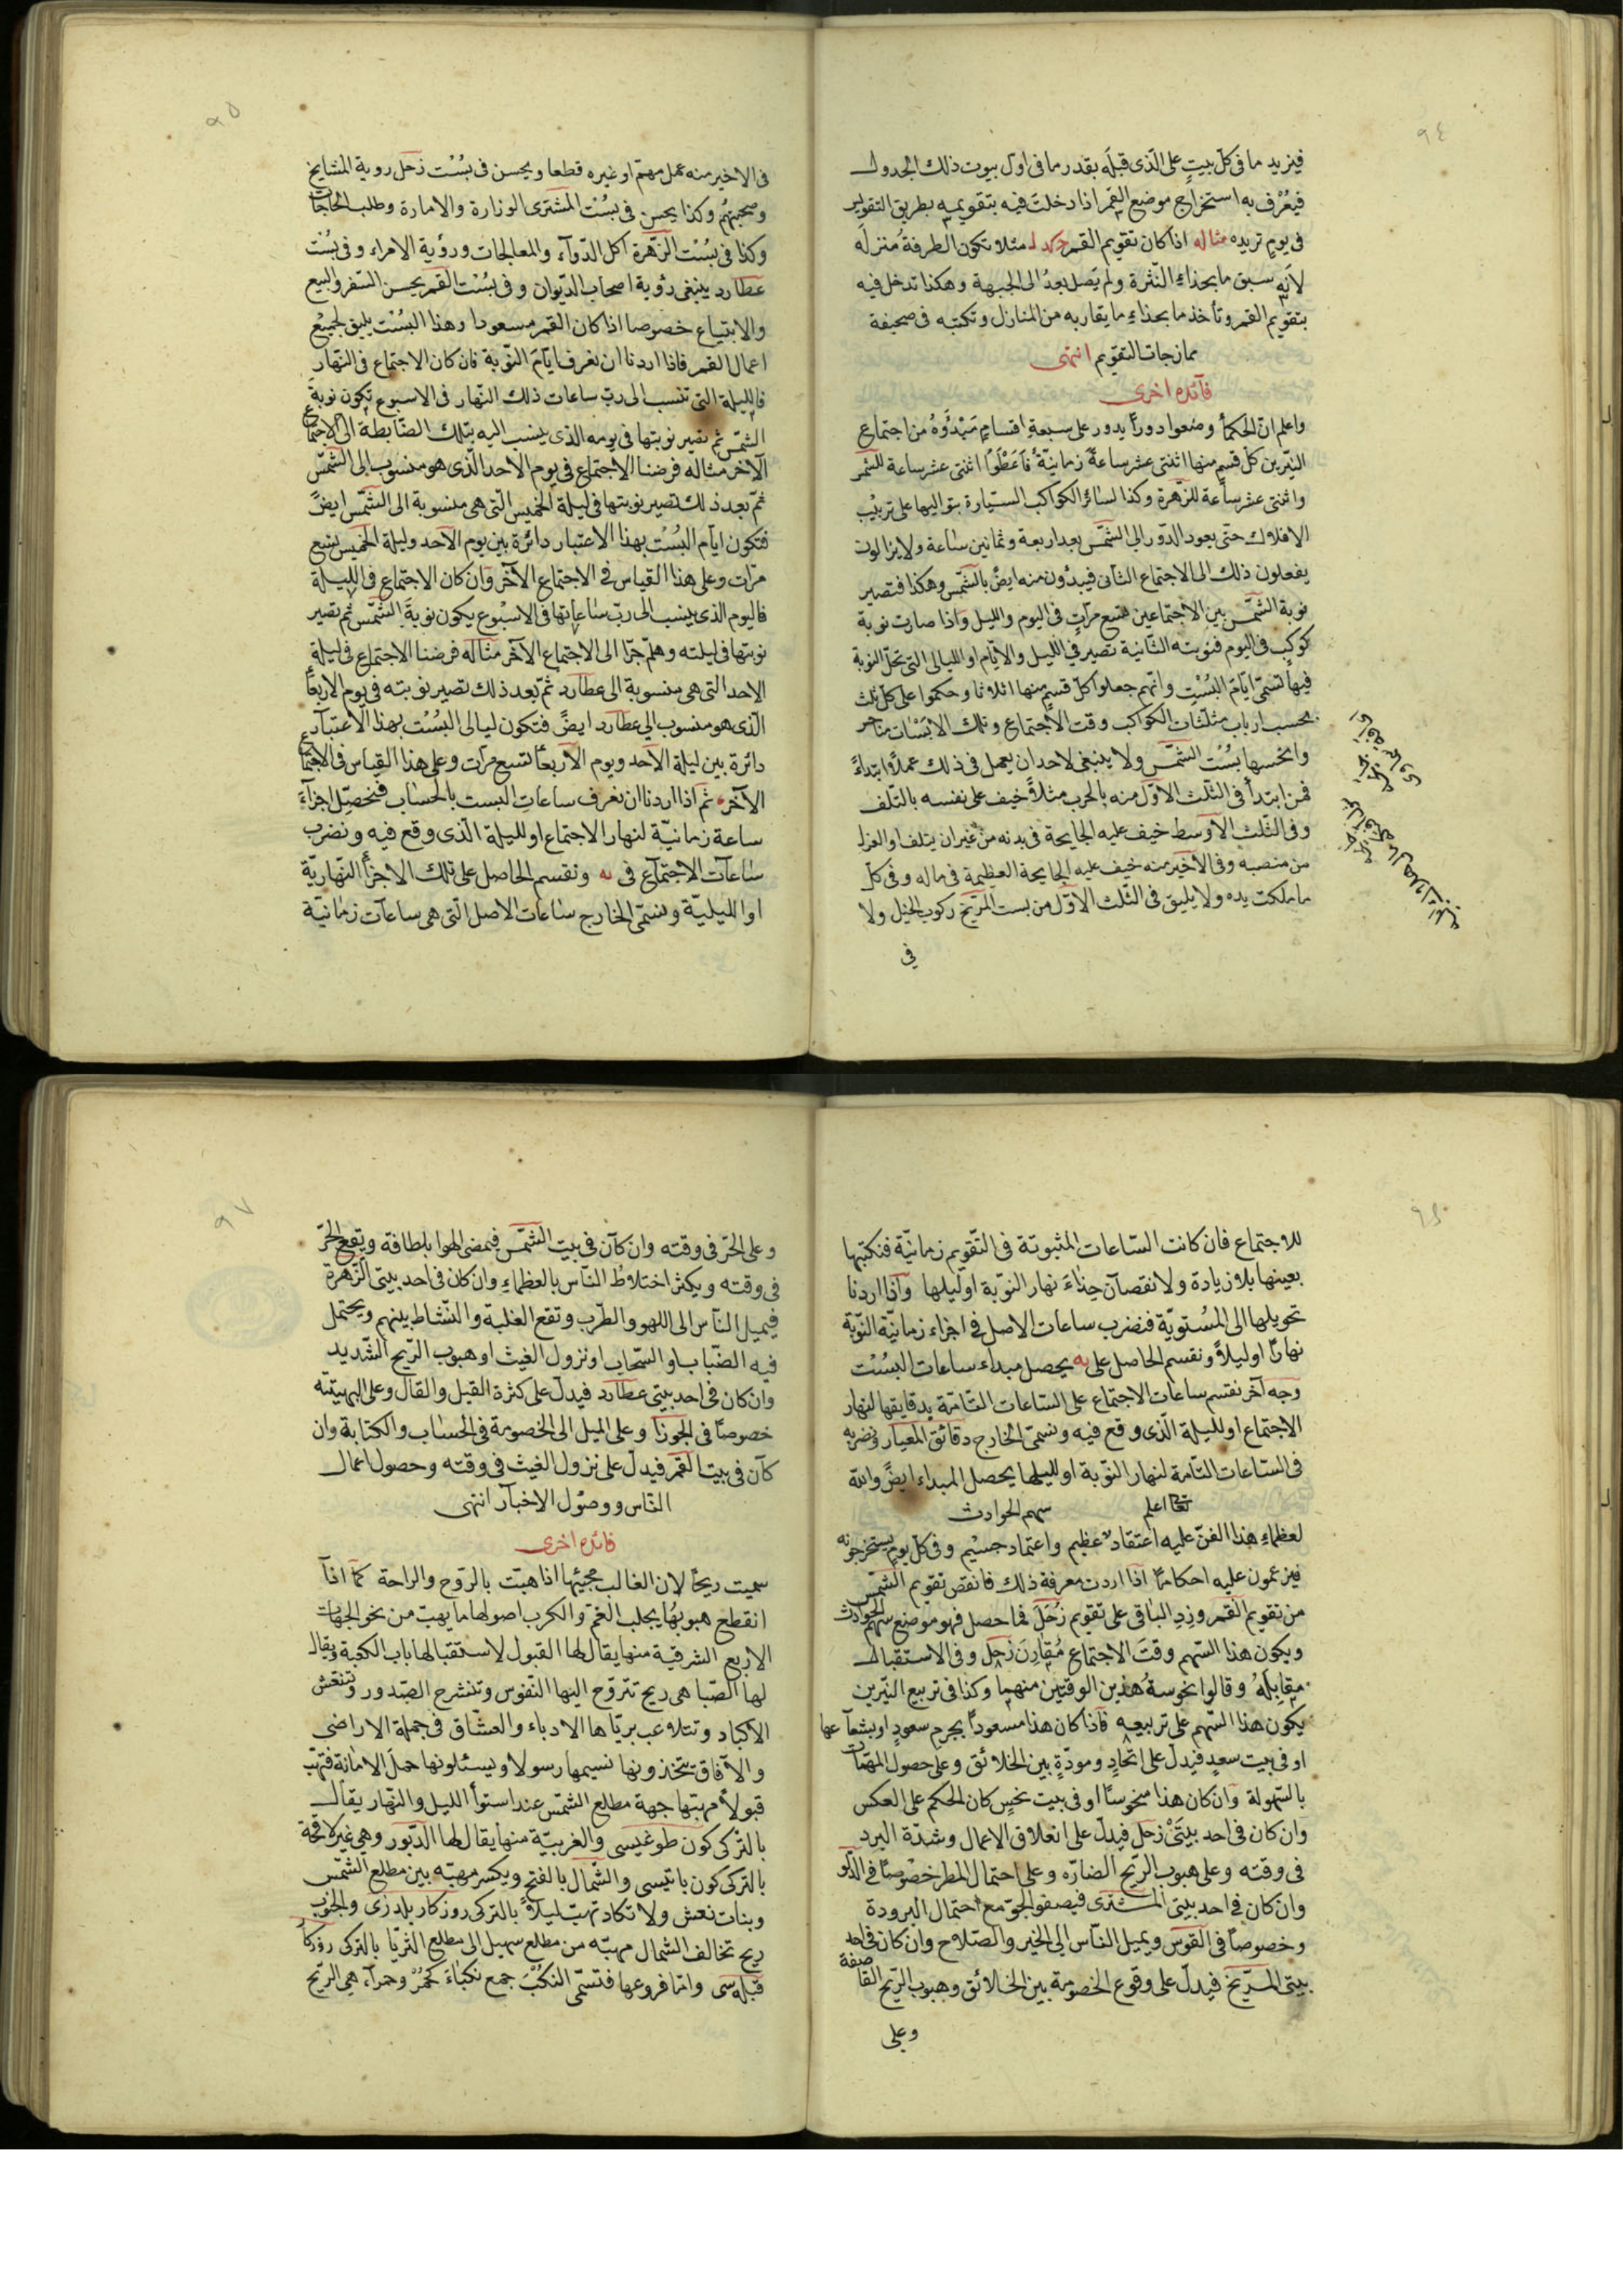 ٩٤
فيزيد ما فى كلّ بيتٍ على الّذى قبله بقدر ما فى اول بيوت ذلك الجدول
فيُعْرَف به استخراج موضع القمر اذا دخلت فيه بتقويمه بطريق التقويم
فى يومٍ تريده مثاله اذا كان تقويم القمر مثلا تكون الطرفة منزله
لانّه سبق ما بحذاء النّثرة ولم يصل بعدُ الى الجبهة وهكذا تدخل فيه
بتقويم القمر وتأخذ ما بحذاء ما يقاربه من المنازل وتكتبه فى صحيفة
ممازجات التقويم انتهى
فآئده اخرى
واعلم انّ الحكمأ وضعوا دوراً يدور على سبعة اقسامٍ مَبْدَؤهُ من اجتماع
النيّرين كلّ قسمٍ منها اثنتى عشر ساعةً زمانيّةً فاَعْطَوْا اثنتى عشر ساعة للشمس
واثنتى عشر ساعة للزّهرة وكذا لسائر الكواكب السيّارة بتواليها على ترتيب
الافلاك حتّى يعود الدّور الى الشمّس بعد اربعة وثمانين ساعة ولا يزالون
يفعلون ذلك الى الاجتماع الثانى فيبدؤن منه ايضً بالشّمس وهكذا فتصير
نوبة الشمّس بين الاجتماعين تسع مرّاتٍ فى اليوم والليل واذا صارت نوبة
كوكبٍ فى اليوم فنوبته الثّانية تصير فى الليل والايّام او الليالى التى تحلّ النوبة
فيها تسمّى ايّام البُسْتِ وانّهم جعلوا كلّ قسمٍ منها اثلاثا وحكموا على كلّ ثلث
بحسب ارباب مثلّثات الكواكب وقت الاجتماع وتلك الابْسَات مناحر
وانحسها بُسْت الشمّس ولا ينبغى لاحد ان يعمل فى ذلك عملاً ابتداءً
فمن ابتدأ فى الثّلث الاوّل منه بالحرب مثلاً خيف على نفسه بالتّلف
وفى الثّلث الاوسط خيف عليه الجايحة فى بدنه من غير ان يتلف او العزل
من منصبه وفى الاخير منه خيف عليه الجايحة العظيمة فى ماله وفى كلّ
ما ملكت يده ولا يليق فى الثّلث الاوّل من بست المرّيخ ركوب الخيل ولا
فى
٩٥
فى الاخير منه عمل مهمّ او غيره قطعا ويحسن فى بُسْت زحل روية المشايخ
وصحبتهُم وكذا يحسن فى بسُت المشترى الوزارة والامارة وطلب الحاجات
وكذا فى بُسْت الزّهرة اكل الدّوآء والمعالجات ورؤية الامراء وفى بُسْت
عطارد ينبغى رؤية اصحاب الدّيوان وفى بُسْت القمر يحسن السّفر والبيع
والابتياع خصوصا اذا كان القمر مسعودا وهذا البُسْت يليق لجميع
اعمال القمر فاذا اردنا ان نعرف ايّام النّوبة فان كان الاجتماع فى النّهار
فالليلة التى تنسب الى ربّ ساعات ذلك النّهار فى الاسبوع تكون نوبة
الشمّس ثم تصير نوبتها فى يومه الذى ينسب اليه بتلك الضّابطة الى الاجتماع
الآخر مثاله فرضنا الاجتماع فى يوم الاحد الّذى هو منسوب الى الشّمس
ثمّ بعد ذلك تصير نوبتها فى ليلة الخميس الّتى هى منسوبة الى الشّمس ايضً
فتكون ايّام البُسْت بهذا الاعتبار دائرة بين يوم الاحد وليلة الخميس تسع
مرّات وعلى هذا القياس فى الاجتماع الآخر وان كان الاجتماع فى الليلة
فاليوم الذى ينسب الى ربّ ساعاتها فى الاسبوع يكون نوبة الشّمس ثم تصير
نوبتها فى ليلته وهلمّ جرّا الى الاجتماع الآخر مثاله فرضنا الاجتماع فى ليلة
الاحد التى هى منسوبة الى عطارد ثمّ بعد ذلك تصير نوبته فى يوم الاربعا
الّذى هو منسوب الى عطارد ايضً فتكون ليالى البُسْت بهذا الاعتبار
دائرة بين ليلة الاحد ويوم الاربعا تسع مرّات وعلى هذا القياس فى الاجتماع
الآخر ثم اذا اردنا ان نعرف ساعات البست بالحساب فنحصّل اجزآء
ساعة زمانيّة لنهار الاجتماع او لليلة الّذى وقع فيه ونضرب
ساعات الاجتماع فى يه ونقسم الحاصل على تلك الاجزأ النّهاريّة
او الليليّة ونسمّى الخارج ساعات الاصل الّتى هى ساعات زمانيّة
٩٦
للاجتماع فان كانت السّاعات المثبوتة فى التّقويم زمانيّة فنكتبها
بعينها بلا زيادة ولا نقصان حِذاءَ نهار النّوبة او ليلها واذا اردنا
تحويلها الى المُستويّة فنضرب ساعات الاصل فى اجزاء زمانيّة النّوبة
نهارًا او ليلاً ونقسم الحاصل على يه يحصل مبداء ساعات البُسْت
وجه آخر نقسم ساعات الاجتماع على السّاعات التّامّة بدقايقها لنهار
الاجتماع او لليلة الّذى وقع فيه ونسمّى الخارج دقائق المعيار ونضربه
فى السّاعات التّامة لنهار النّوبة او لليلها يحصل المبداء ايضً والله
تعالى اعلم سهم الحوادث
لعظماء هذا الفنّ عليه اعتقاد عظيم واعتماد جسيْم وفى كلّ يومٍ يستخرجونه
فيزعمون عليه احكامًا اذا اردت معرفة ذلك فانقص تقويم الشمّس
من تقويم القمر وزِدِ الباقى على تقويم زُحَلَ فما حصل فهو موضع سهم الحوادث
ويكون هذا السّهم وقتَ الاجتماع مُقارِنَ زحل وفى الاستقبال
مقابِلَهُ وقالوا بنحوسة هٰذين الوقتين منهما وكذا فى تربيع النيّرين
يكون هذا السّهم على تربيعه فاذا كان هذا مسعوداً بجرم سعودٍ او بشعاعها
او فى بيت سعدٍ فيدلّ على اتّحادٍ ومودّةٍ بين الخلائق وعلى حصول المهمّات
بالسّهولة وان كان هذا منحوسًا او فى بيت نحسٍ كان الحكم على العكس
وان كان فى احد بيتَىْ زحل فيدلّ على انغلاق الاعمال وشدّة البرد
فى وقته وعلى هبوب الرّيح الضارّه وعلى احتمال المطر خصْوصًا فى الدّلو
وان كان فى احد بيتى المشترى فيصفو الجوّ مع احتمال البرودة
وخصوصاً فى القوس ويميل النّاس الى الخير والصّلاح وان كان فى احد
بيتى المرّيخ فيدلّ على وقوع الخصومة بين الخلائق وهبوب الرّيح القاصفة
وعلى
٩٧
وعلى الحَرّ فى وقته وان كان فى بيت الشمّس فيمضى الهوا بلطافة ويقع الحَرّ
فى وقته ويكثر اختلاطُ النّاس بالعظماءِ وان كان فى احد بيتى الزّهرة
فيميل النّاس الى اللهو والطّرب وتقع الغلبة والنّشاط بينهم ويحتمل
فيه الضّباب او السّحاب او نزول الغيث او هبوب الرّيح الشّديد
وان كان فى احد بيتى عطارد فيدلّ على كثرة القيل والقال وعلى الهيبته
خصوصًا فى الجوزا وعلى الميل الى الخصومة فى الحساب والكتابة وان
كان فى بيت القمر فيدلّ على نزول الغيث فى وقته وحصول اعمال
النّاس ووصوْل الاخبار انتهى
فائده اخرى
سميت ريحاً لان الغالب مجيئها اذا هبّت بالرّوح والراحة كما اذا
انقطع هبوبهُا يجلب الغمّ والكرب اصولها ما يهبّ من نحو الجهات
الاربع الشرقيّة منها يقال لها القبول لاستقبالها باب الكعبة ويقال
لها الصّبا هى ريح تتروّح اليها النّفوس وتنشرح الصّدور وتنعش
الاكباد وتتلاعب بريّاها الادباء والعشّاق فى جملة الاراضى
والآفاق يتخذونها نسيمها رسولا ويسئلونها حمل الامانة فتهبّ
قبولاً مهبّها جهة مطلع الشّمس عند استوأ الليل والنّهار يقال
بالتّركى كون طوغيسى والغربيّة منها يقال لها الدّبور وهى غير لاقحة
بالتركى كون باتيسى والشّمال بالفتح ويكسر مهبّه بين مطلع الشّمس
وبنات نعش ولا تكاد تهبّ ليلاً بالتركى روزكار يلدزى والجنوب
ريح تخالف الشمال مهبّه من مطلع سهيل الى مطلع الثريّا بالتركى روزكار
قبله سى وامّا فروعها فتسمّى النكْبَ جمع نكباءَ كحُمْرٌ وحمرآء هى الريّح